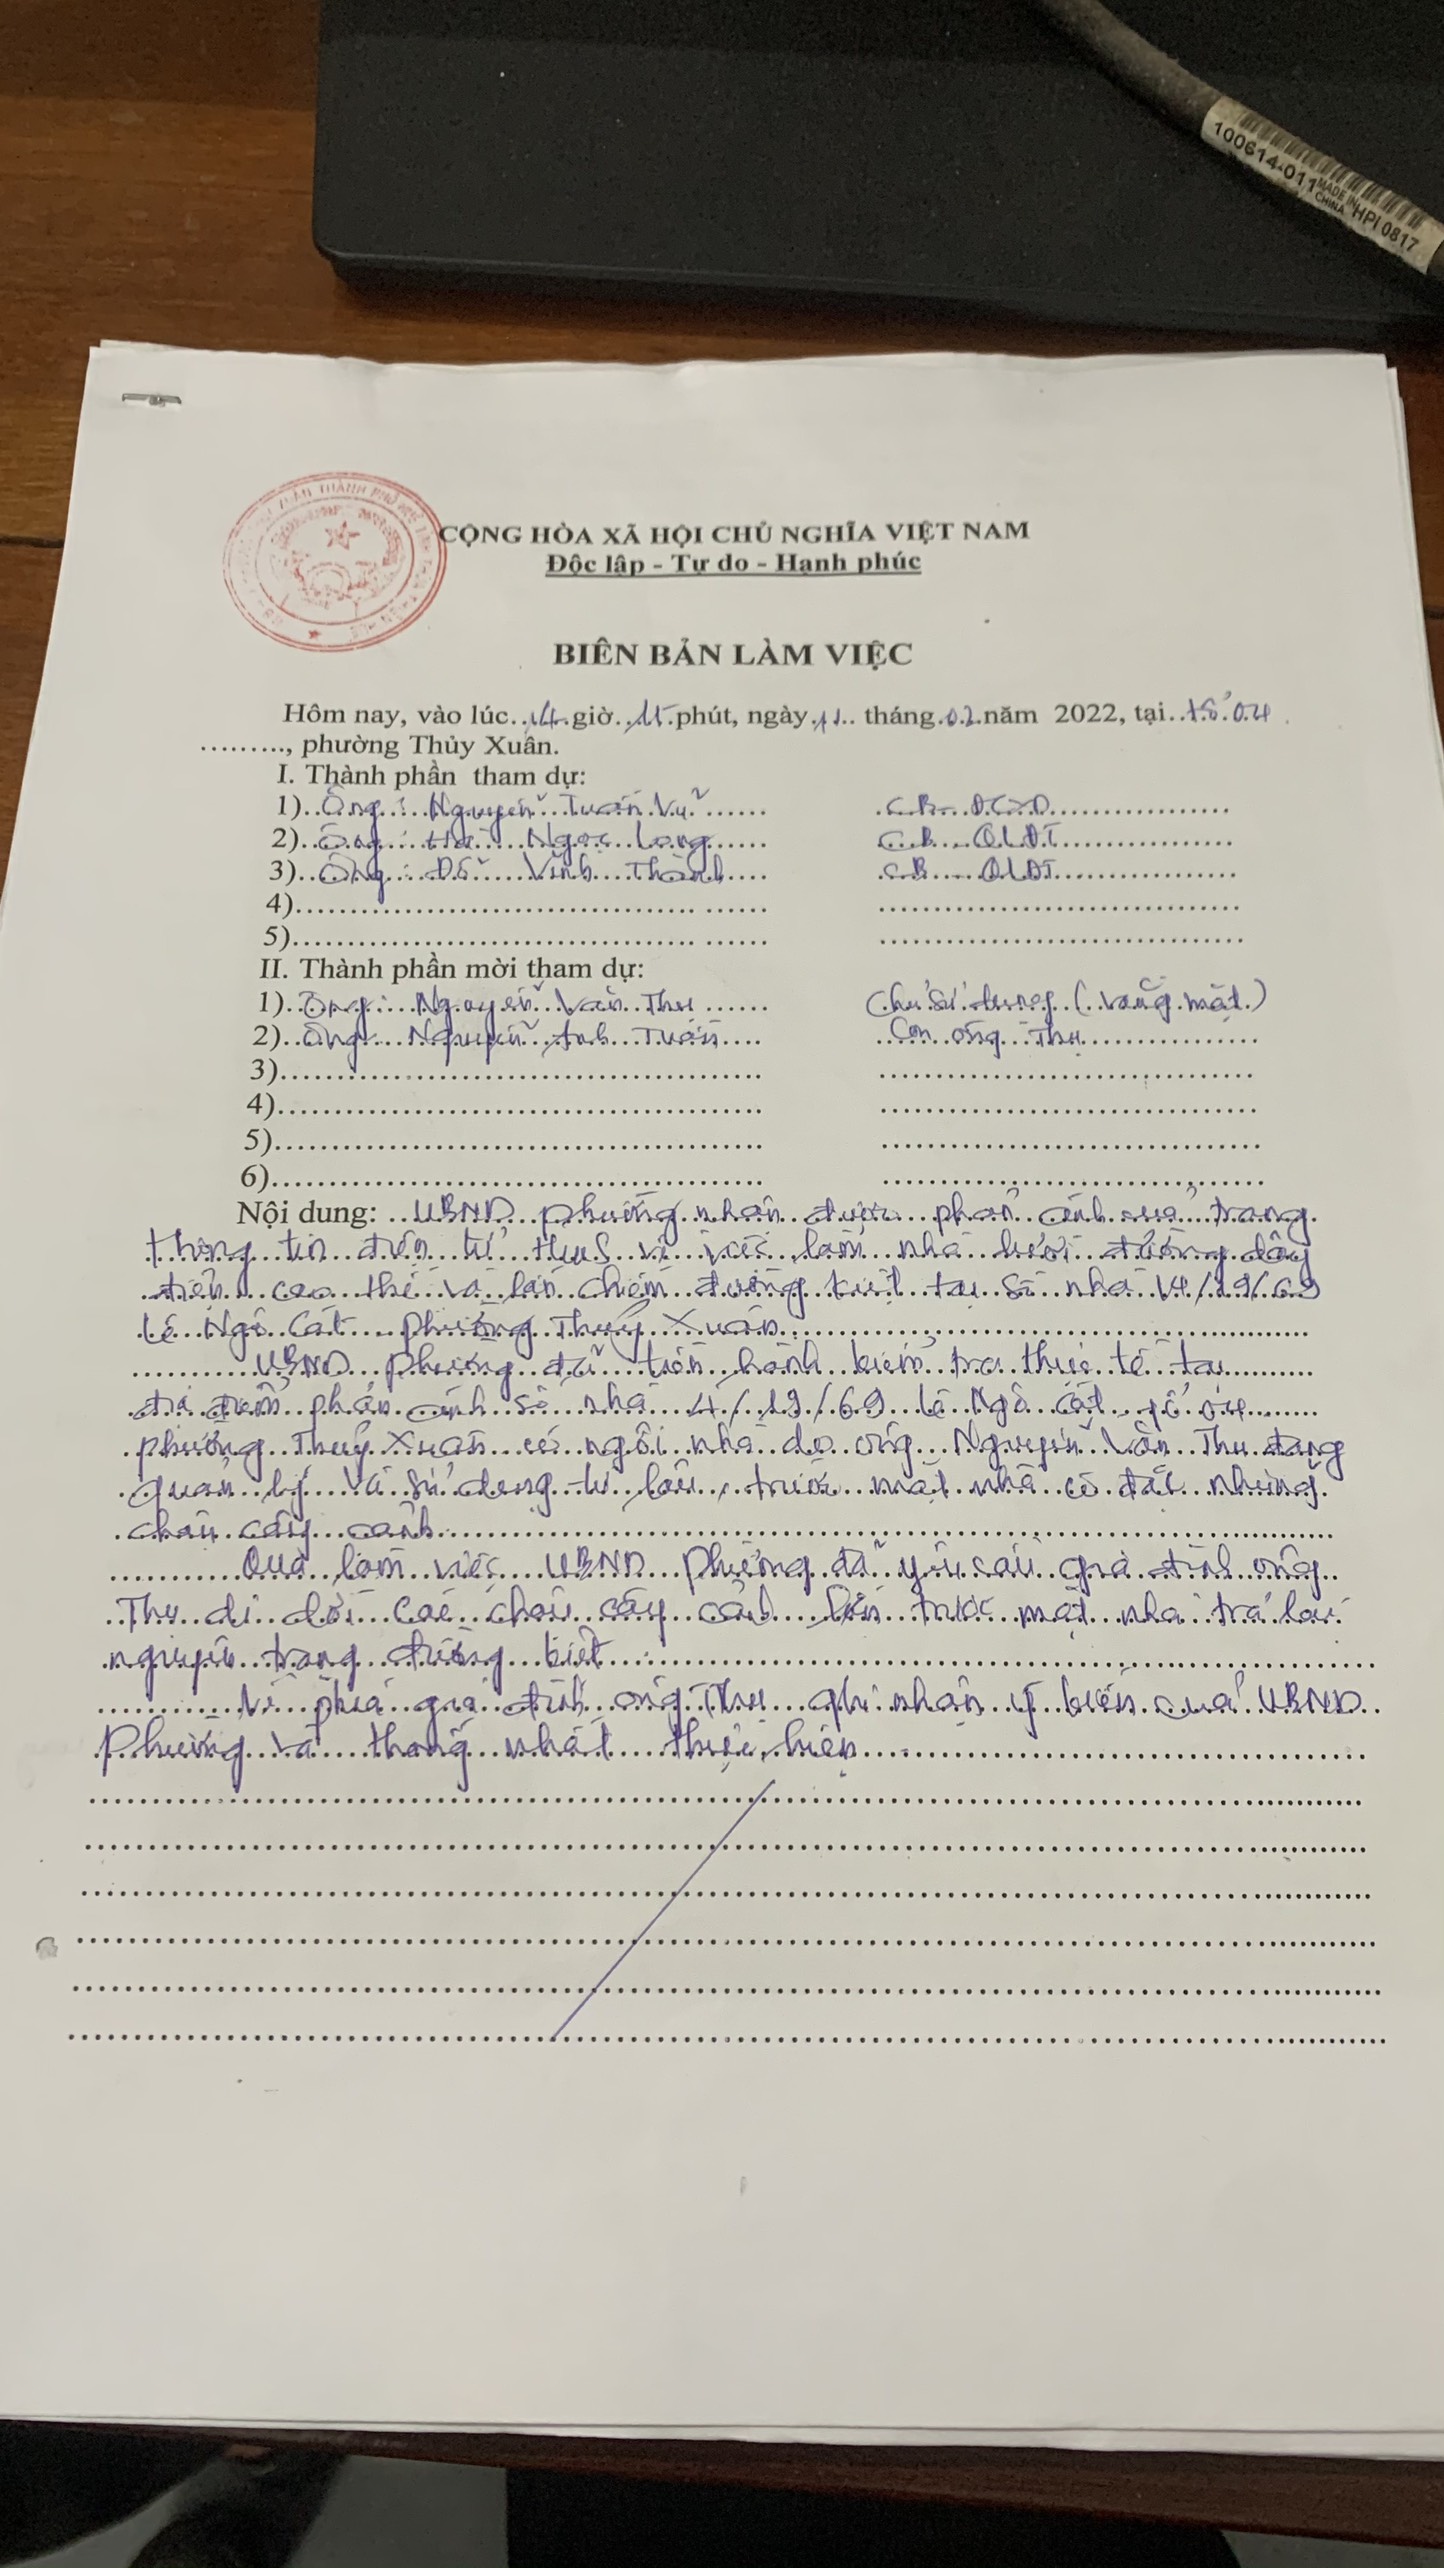 100614-011 MADE IN CHINA HPI 0817
CỘNG HÒA XÃ HỘI CHỦ NGHĨA VIỆT NAM
Độc lập - Tự do - Hạnh phúc
BIÊN BẢN LÀM VIỆC
Hôm nay, vào lúc..14.giờ..15.phút, ngày.11.. tháng.02.năm 2022, tại..Tổ 04
........., phường Thủy Xuân.
I. Thành phần tham dự:
1)..Ông : Nguyễn Tuấn Vũ ...... CB - ĐCXD
2)..Ông : Hà Ngọc Long ...... CB - QLĐT
3)..Ông : Đỗ Vĩnh Thành .... CB - QLĐT
4)
5)
II. Thành phần mời tham dự:
1)..Ông : Nguyễn Văn Thu ...... Chủ sử dụng (vắng mặt)
2)..Ông : Nguyễn Anh Tuấn .... Con ông Thu
3)
4)
5)
6)
Nội dung: UBND phường nhận được phản ánh của trang
thông tin điện tử về việc làm nhà dưới đường dây
điện cao thế và lấn chiếm đường kiệt tại số nhà 14/19/69
Lê Ngô Cát phường Thủy Xuân
UBND phường đã tiến hành kiểm tra thực tế tại
địa điểm phản ánh số nhà 4/19/69 Lê Ngô Cát, tổ 04
phường Thủy Xuân có ngôi nhà do ông Nguyễn Văn Thu đang
quản lý và sử dụng từ lâu, trước mặt nhà có đặt những
chậu cây cảnh
Qua làm việc UBND phường đã yêu cầu gia đình ông
Thu di dời các chậu cây cảnh trước mặt nhà trả lại
nguyên trạng đường kiệt
Về phía gia đình ông Thu ghi nhận ý kiến của UBND
phường và thống nhất thực hiện